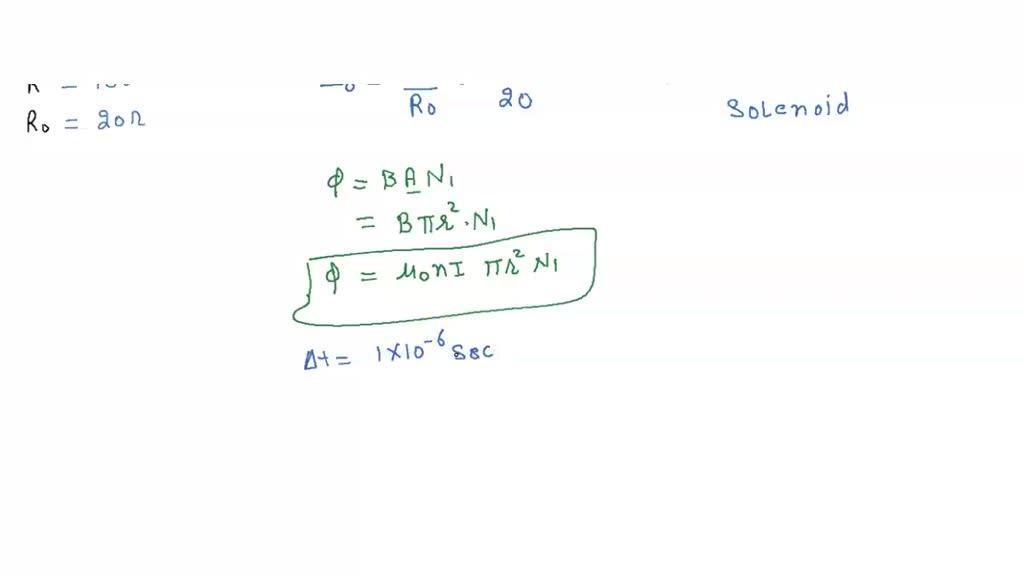 R₀ = 20Ω
R₀ 20
Solenoid
ϕ = B A N₁
= B π r² · N₁
ϕ = μ₀ n I π r² N₁
Δt = 1×10⁻⁶ sec